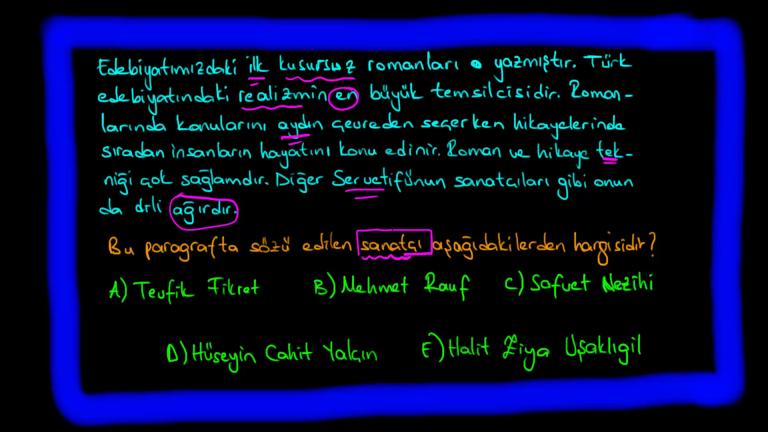 Edebiyatımızdaki ilk kusursuz romanları o yazmıştır. Türk
edebiyatındaki realizmin en büyük temsilcisidir. Roman-
larında konularını aydın çevreden seçerken hikayelerinde
sıradan insanların hayatını konu edinir. Roman ve hikaye tek-
niği çok sağlamdır. Diğer Servetifünun sanatçıları gibi onun
da dili ağırdır.
Bu paragrafta sözü edilen sanatçı aşağıdakilerden hangisidir?
A) Tevfik Fikret B) Mehmet Rauf C) Safvet Nezihi
D) Hüseyin Cahit Yalçın E) Halit Ziya Uşaklıgil